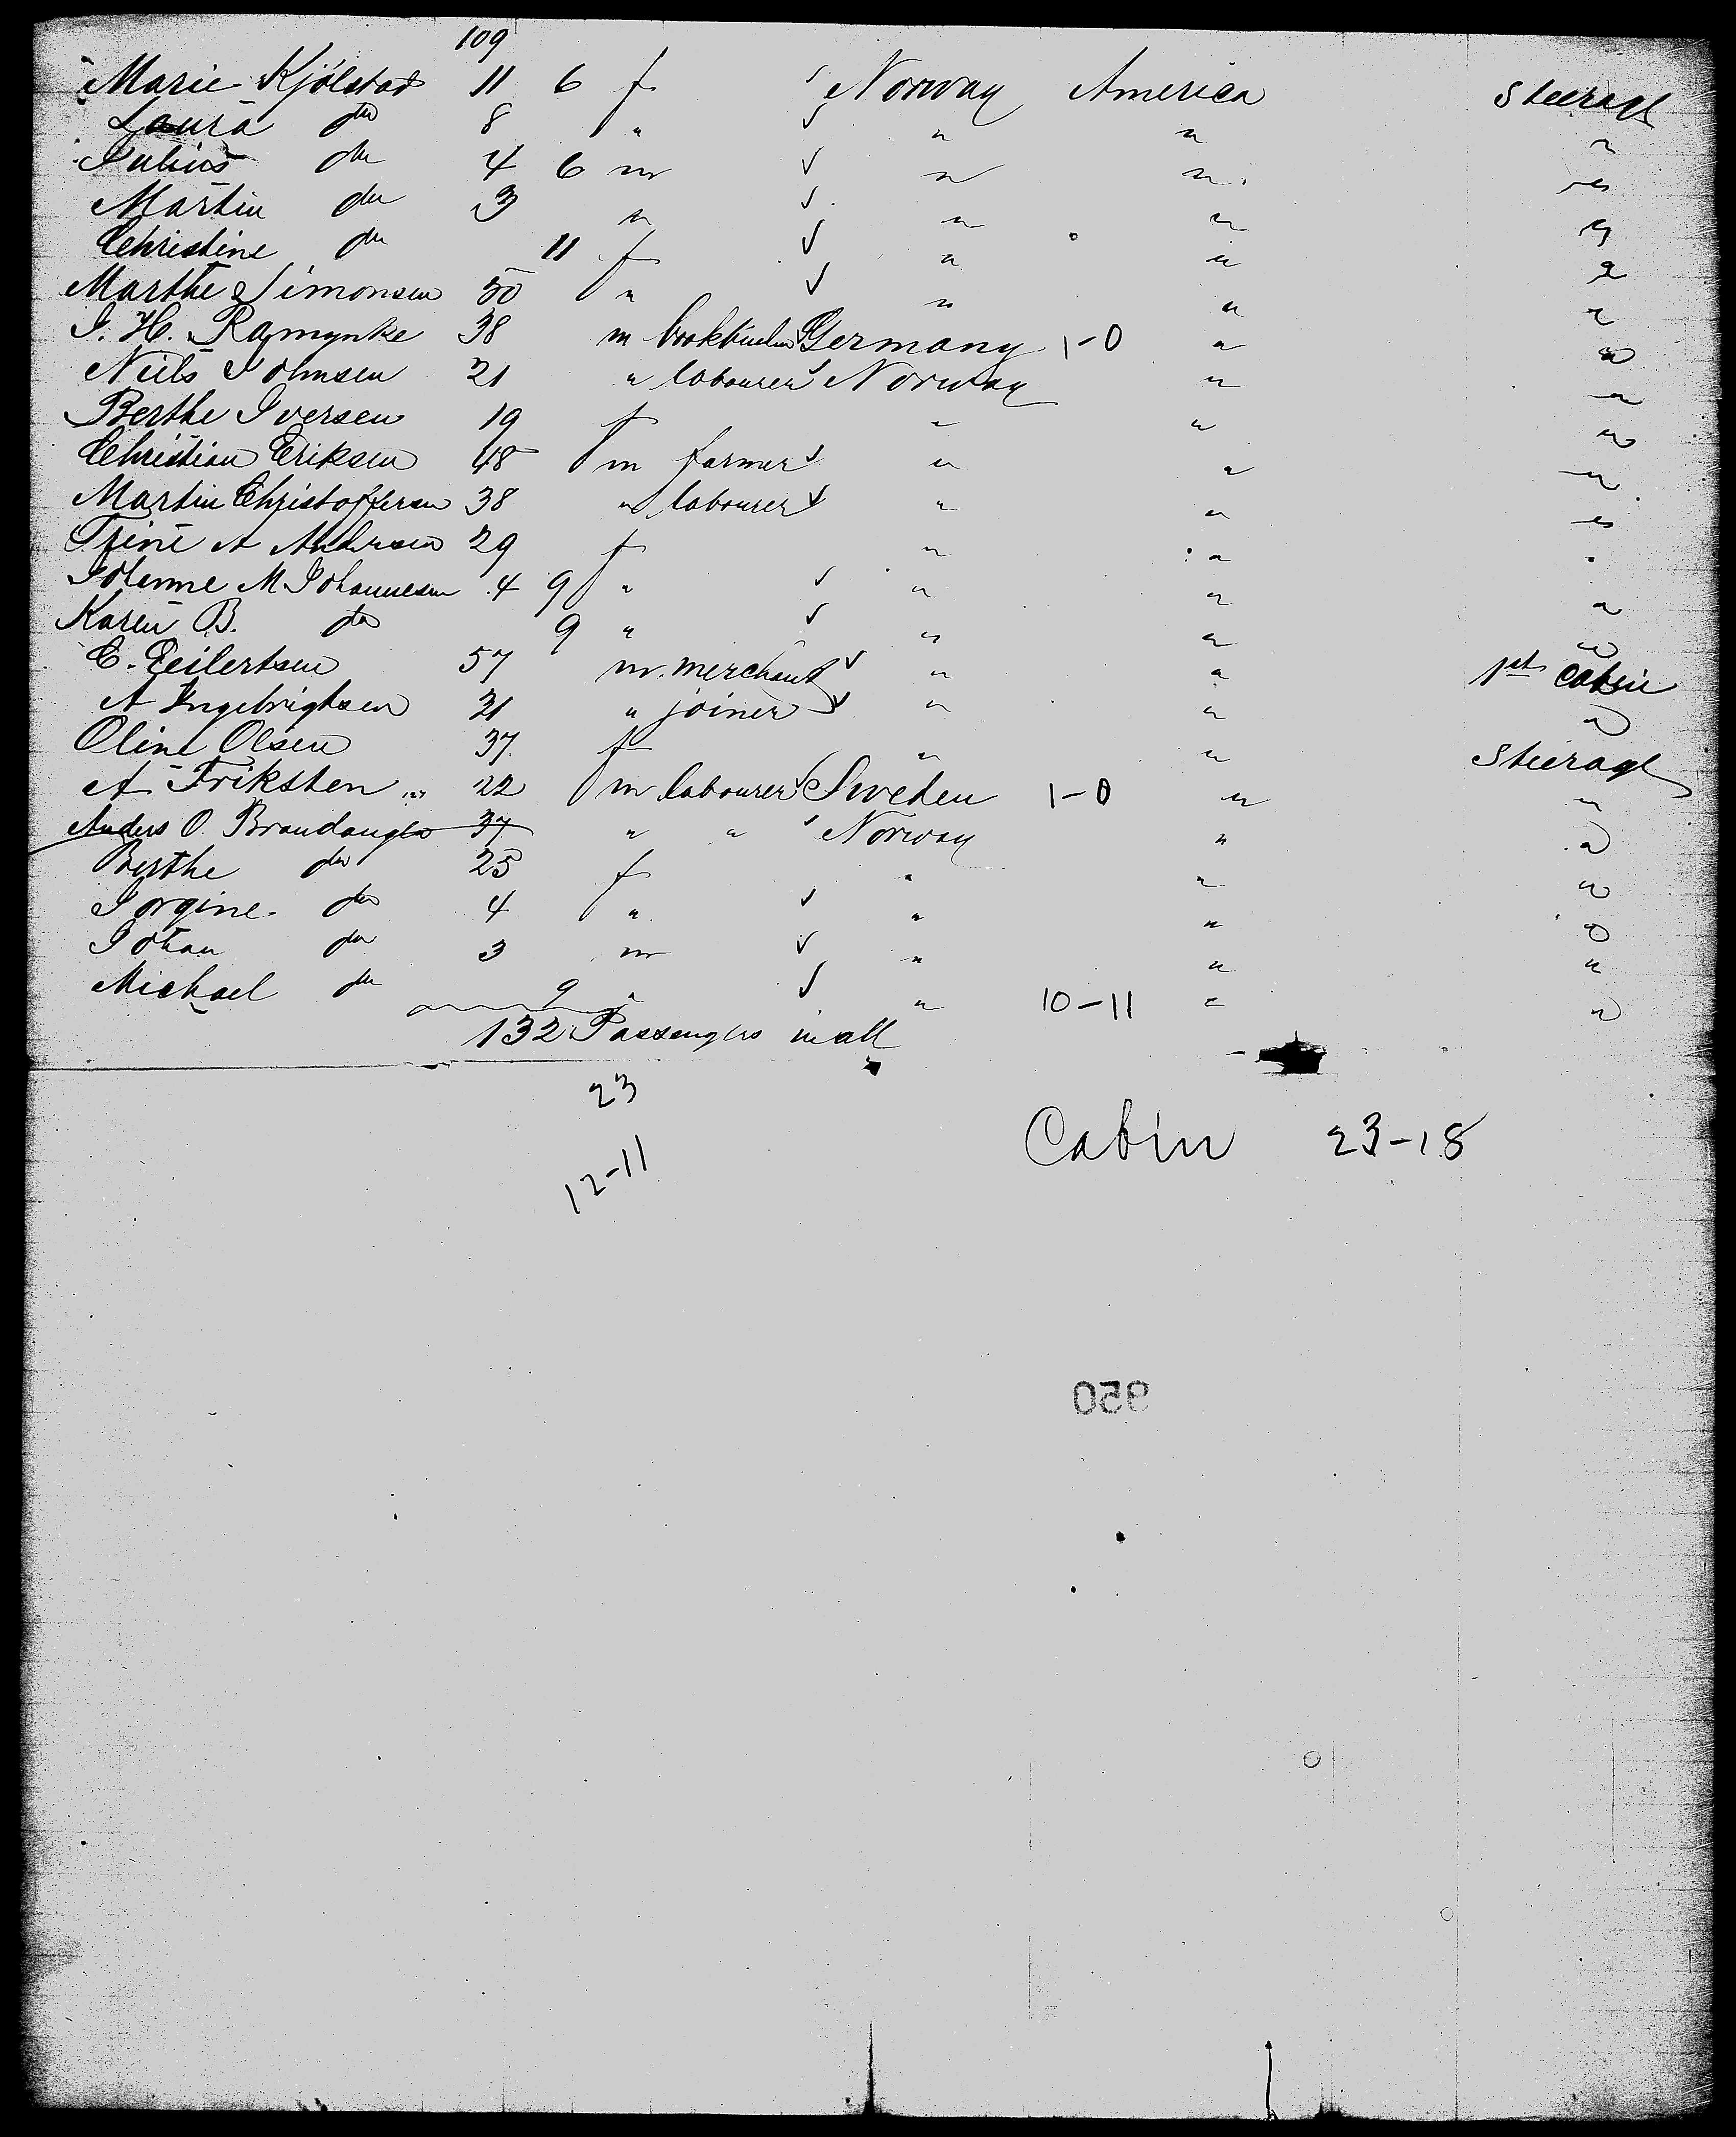 109
Marie Kjölstad 11 6 f Norway America Steerage
Laura do 8 " " " "
Julius do 4 6 m " " "
Martin do 3 " " " "
Christine do 11 f " " "
Marthe Simonsen 50 " " " "
J. H. Ramynke 38 m bookbinder Germany 1-0 " "
Niels Johnsen 21 " labourer Norway " "
Berthe Iversen 19 f " " "
Christian Eriksen 48 m farmer " " "
Martin Christoffersen 38 " labourer " " "
Trine A Andersen 29 f " " "
Johanne M Johannesen 4 9 " " " "
Karen B. do 9 " " " "
E. Eilertsen 57 m. merchant " " 1st Cabin
A Ingebrigtsen 21 " joiner " " "
Oline Olsen 37 f " " Steerage
A Friksten 22 m labourer Sweden 1-0 " "
Anders O. 37 " " Norway " "
Berthe do 25 f " " "
Jorgine do 4 " " " "
Johan do 3 m " " "
Michael do 9 " " 10-11 " "
132 Passengers in all
23
Cabin 23-18
12-11
950